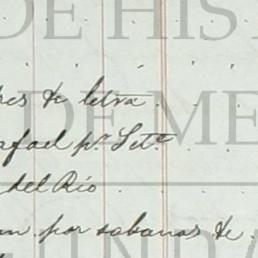 DE HIST
res de letra
afael pr. Sete.
DE ME
del Rio
n por sabanas de
UNDA